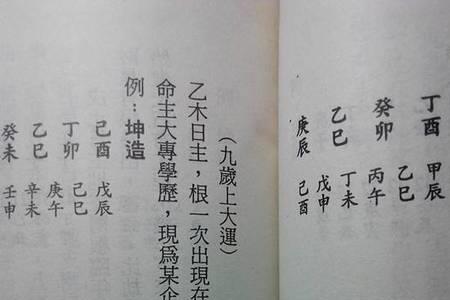 丁酉
癸卯
乙巳
庚辰
甲辰
乙巳
丙午
丁未
戊申
己酉
（九歲上大運）
乙木日主，根一次出現在
命主大專學歷，現爲某企
例：坤造
己酉
丁卯
乙巳
癸未
戊辰
己巳
庚午
辛未
壬申